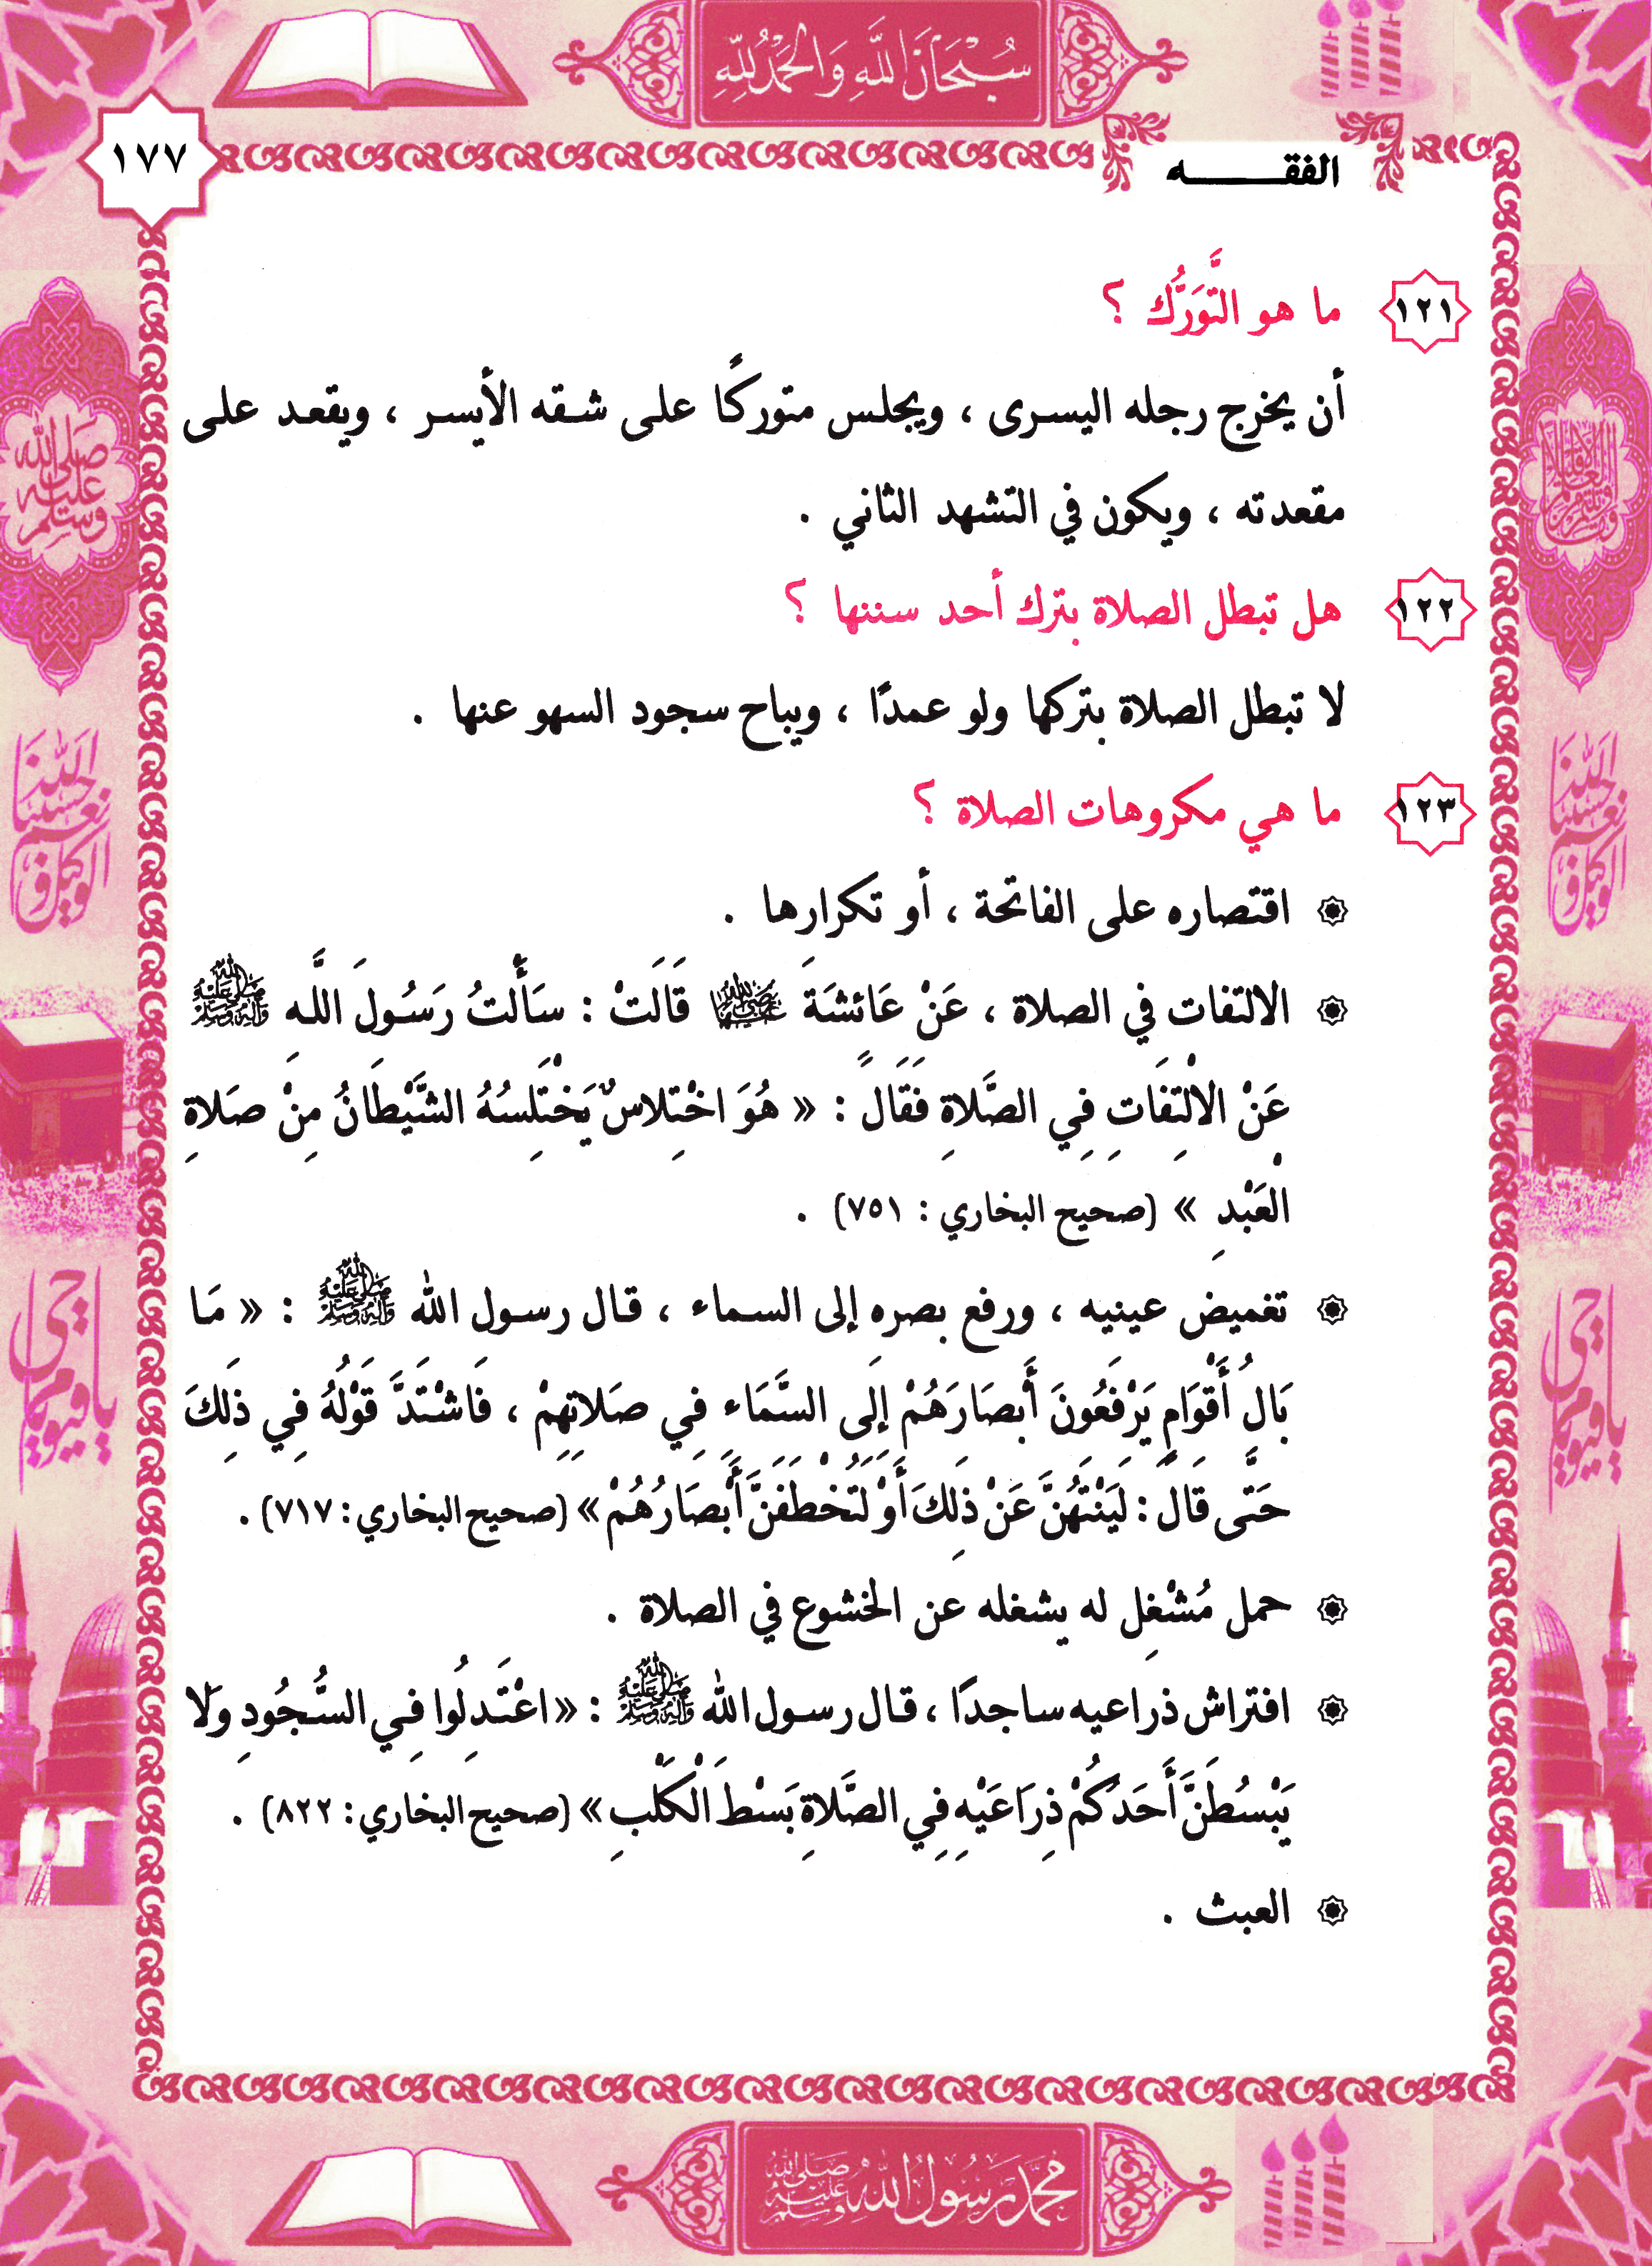 سُبْحَانَ اللَّهِ وَالْحَمْدُ لِلَّهِ
١٧٧
الفقـــــه
١٢١ ما هو التَّوَرُّك ؟
أن يخرج رجله اليسرى ، ويجلس متوركًا على شقه الأيسر ، ويقعد على
مقعدته ، ويكون في التشهد الثاني .
١٢٢ هل تبطل الصلاة بترك أحد سننها ؟
لا تبطل الصلاة بتركها ولو عمدًا ، ويباح سجود السهو عنها .
١٢٣ ما هي مكروهات الصلاة ؟
اقتصاره على الفاتحة ، أو تكرارها .
الالتفات في الصلاة ، عَنْ عَائشَةَ رضي الله عنها قَالَتْ : سَأَلتُ رَسُولَ اللَّهِ ﷺ
عَنْ الِالْتِفَاتِ فِي الصَّلَاةِ فَقَالَ : « هُوَ اخْتِلاسٌ يَخْتَلِسُهُ الشَّيْطَانُ مِنْ صَلاةِ
الْعَبْدِ » (صحيح البخاري : ٧٥١) .
تغميض عينيه ، ورفع بصره إلى السماء ، قال رسول الله ﷺ : « مَا
بَالُ أَقْوَامٍ يَرْفَعُونَ أَبصَارَهُمْ إِلَى السَّمَاء فِي صَلاتِهِمْ ، فَاشْتَدَّ قَوْلُهُ فِي ذَلِكَ
حَتَّى قَالَ : لَيَنْتَهُنَّ عَنْ ذَلِكَ أَوْ لَتُخْطَفَنَّ أَبْصَارُهُمْ » (صحيح البخاري : ٧١٧) .
حمل مُشْغِل له يشغله عن الخشوع في الصلاة .
افتراش ذراعيه ساجدًا ، قال رسول الله ﷺ : « اعْتَدِلُوا فِي السُّجُودِ وَلَا
يَبْسُطَنَّ أَحَدُكُمْ ذِرَاعَيْهِ فِي الصَّلَاةِ بَسْطَ الْكَلْبِ » (صحيح البخاري : ٨٢٢) .
العبث .
صلى الله عليه وسلم
حسبنا الله ونعم الوكيل
يا حي يا قيوم
حسبنا الله ونعم الوكيل
يا حي يا قيوم
محمد رسول الله صلى الله عليه وسلم